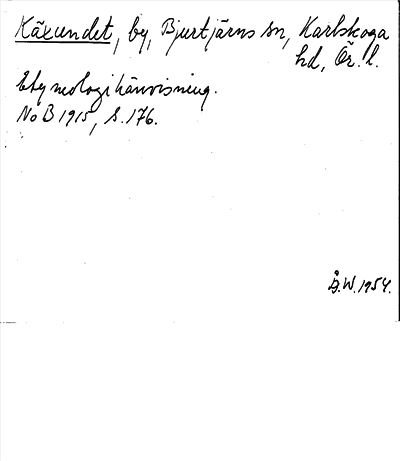 Käxundet, by, Bjurtjärns sn, Karlskoga
hd, Ör. l.
Etymologihänvisning.
NoB 1915, S. 176.
Å.W. 1954.